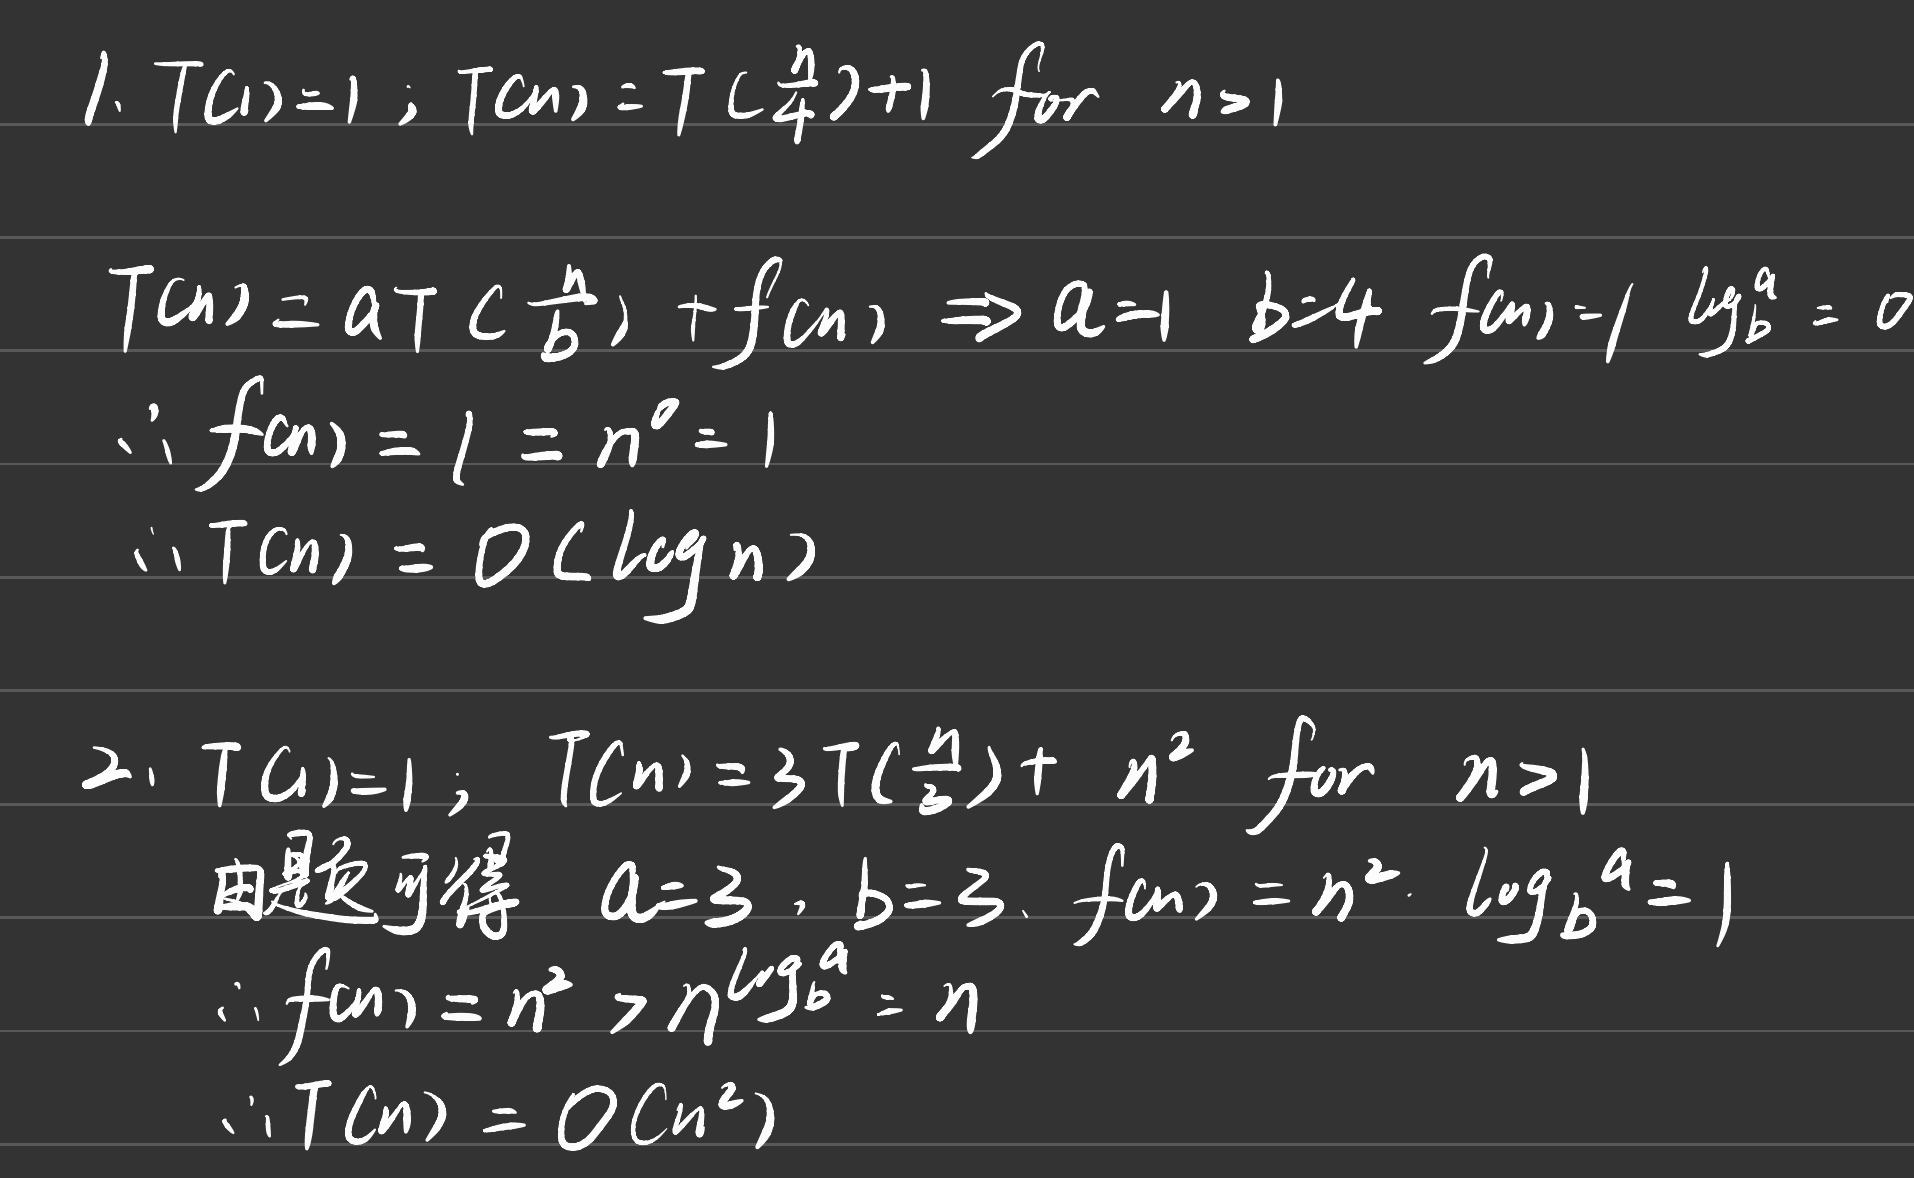 1. T(1)=1 ; T(n) = T(n/4)+1 for n>1
T(n) = aT(n/b) + f(n) ⇒ a=1 b=4 f(n)=1 log_b^a = 0
∴ f(n) = 1 = n^0 = 1
∴ T(n) = O(log n)
2. T(1)=1 ; T(n) = 3T(n/3) + n² for n>1
由题可得 a=3 , b=3 、 f(n) = n² . log_b^a = 1
∴ f(n) = n² > n^(log_b^a) = n
∴ T(n) = O(n²)